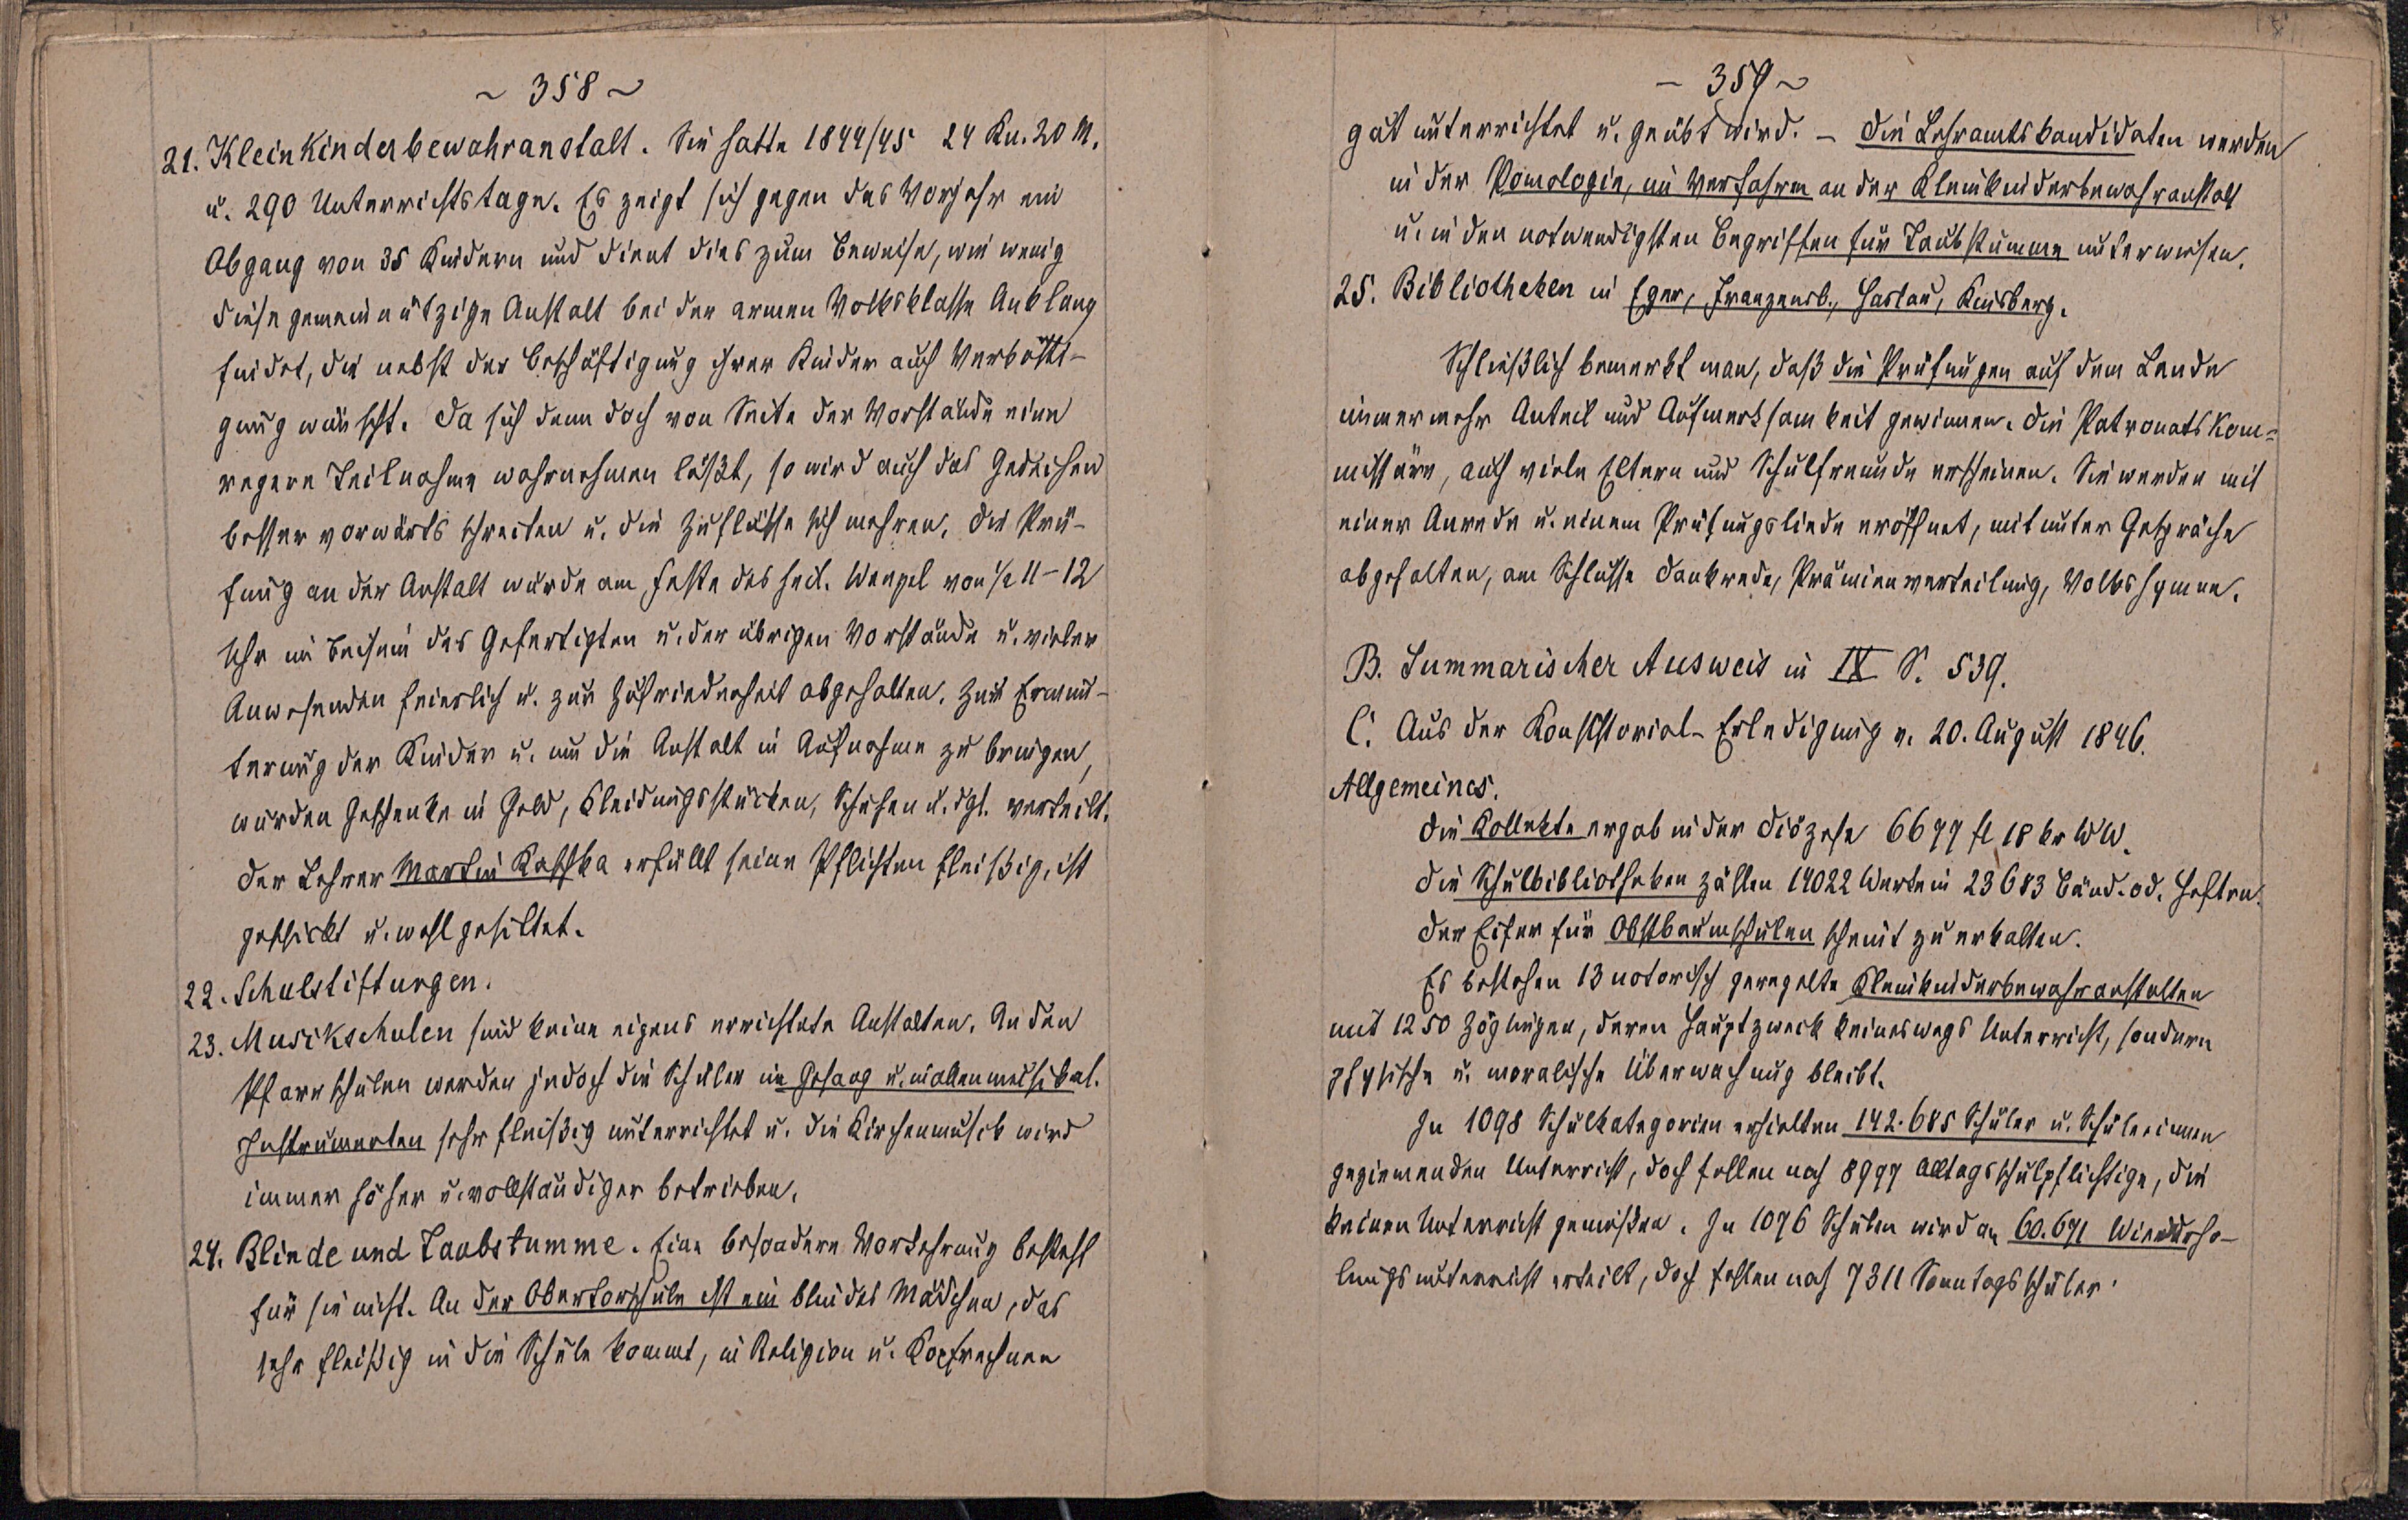 ~ 358 ~
21. Kleinkinderbewahranstalt. Sie hatte 1844/45 24 Kn. 20 M.
u. 290 Unterrichtstage. Es zeigt sich gegen das Vorjahr ein
Abgang von 35 Kindern und dient dies zum Beweise, wie wenig
diese gemeinnützige Anstalt bei der armen Volksklasse Anklang
findet, die nebst der Beschäftigung ihrer Kinder auch Verkösti-
gung wünscht. Da sich denn doch von Seite der Vorstände eine
regere Teilnahme wahrnehmen läßt, so wird auch das Gedeihen
besser vorwärts schreiten u. die Zuflüsse sich mehren. Die Prü-
fung an der Anstalt wurde am Feste des heil. Wenzel von ½ 11-12
Uhr im Beisein des Gefertigten u. der übrigen Vorstände u. vieler
Anwesenden feierlich u. zur Zufriedenheit abgehalten. Zur Ermun-
terung der Kinder u. um die Anstalt in Aufnahme zu bringen,
wurden Geschenke in Geld, Kleidungsstücken, Schuhen u. dgl. verteilt.
Der Lehrer Martin Kaschka erfüllt seine Pflichten fleißig, ist
geschickt u. wohl gesittet.
22. Schulstiftungen.
23. Musikschulen sind keine eigens errichtete Anstalten. An den
Pfarrschulen werden jedoch die Schüler im Gesang u. in allen musikal.
Instrumenten sehr fleißig unterrichtet u. die Kirchenmusik wird
immer höher u. vollständiger betrieben.
24. Blinde und Taubstumme. Eine besondere Vorkehrung besteht
für sie nicht. An der Obertorschule ist ein blindes Mädchen, das
sehr fleißig in die Schule kommt, in Religion u. Kopfrechnen
- 359 ~
gut unterrichtet u. geübt wird. - Die Lehramtskandidaten werden
in der Pomologie, im Verfahren an der Kleinkinderbewahranstalt
u. in den notwendigsten Begriffen für Taubstumme unterwiesen.
25. Bibliotheken in Eger, Franzensb., Haslau, Kinsberg.
Schließlich bemerkt man, daß die Prüfungen auf dem Lande
immer mehr Anteil und Aufmerksamkeit gewinnen. Die Patronatskom=
missäre, auch viele Eltern und Schulfreunde erscheinen. Sie werden mit
einer Anrede u. einem Prüfungsliede eröffnet, mitunter Gespräche
abgehalten, am Schlusse Dankrede, Prämienverteilung, Volkshymne.
B. Summarischer Ausweis in IX S. 539.
C. Aus der Konsistorial-Erledigung v. 20. August 1846.
Allgemeines.
Die Kollekte ergab in der Diözese 6699 fl 18 kr WW.
Die Schulbibliotheken zählen 14022 Werke in 23683 Bänd. od. Heften.
Der Eifer für Obstbaumschulen scheint zu erkalten.
Es bestehen 13 notorisch geregelte Kleinkinderbewahranstalten
mit 1250 Zöglingen, deren Hauptzweck keineswegs Unterricht, sondern
physische u. moralische Überwachung bleibt.
In 1098 Schulkategorien erhielten 142.685 Schüler u. Schülerinnen
geziemenden Unterricht, doch fehlen noch 8999 Alltagsschulpflichtige, die
keinen Unterricht genießen. In 1076 Schulen wird an 60.691 Wiederho-
lungsunterricht erteilt, doch fehlen noch 7311 Sonntagsschüler.